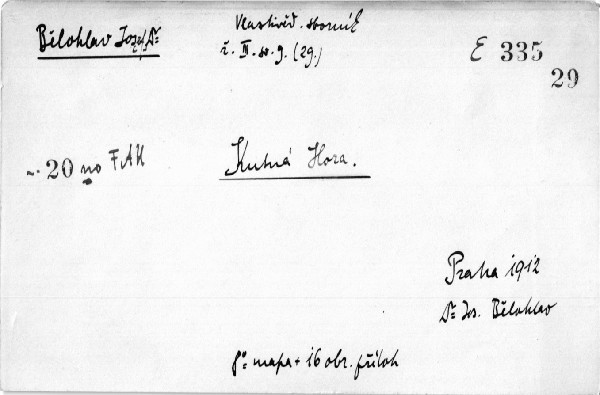 Bělohlav Josef Dr
Vlastivěd. sborník
č. III. sv. 9. (29.)
E 335
29
20 no FAH
Kutná Hora.
Praha 1912
Dr Jos. Bělohlav
8° mapa + 16 obr. příloh